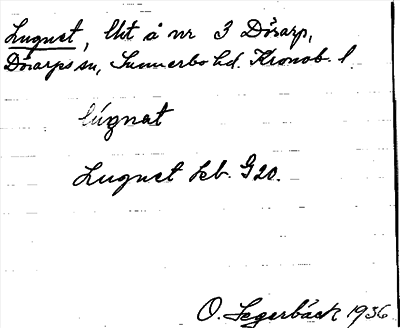 Lugnet, lht å nr 3 Dörarp,
Dörarps sn, Sunnerbo hd. Kronob. l.
lúgnat
Lugnet kb. G20.
O. Segerbäck 1936